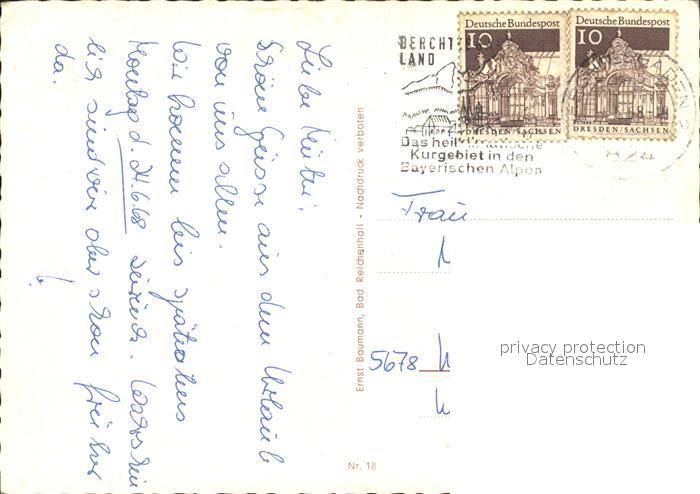 Liebe Mutti,
Schöne Grüsse aus dem Urlaub
von uns allen.
Wir kommen bis spätestens
Montag d. 24.6.68 zurück. Wahrschein
lich sind wir aber schon früher
da.
Ernst Baumann, Bad Reichenhall - Nachdruck verboten
Nr. 18
BERCHT
LAND
Das heilklimatische
Kurgebiet in den
Bayerischen Alpen
Deutsche Bundespost
10
DRESDEN/SACHSEN
Deutsche Bundespost
10
DRESDEN/SACHSEN
824
Frau
5678
privacy protection
Datenschutz